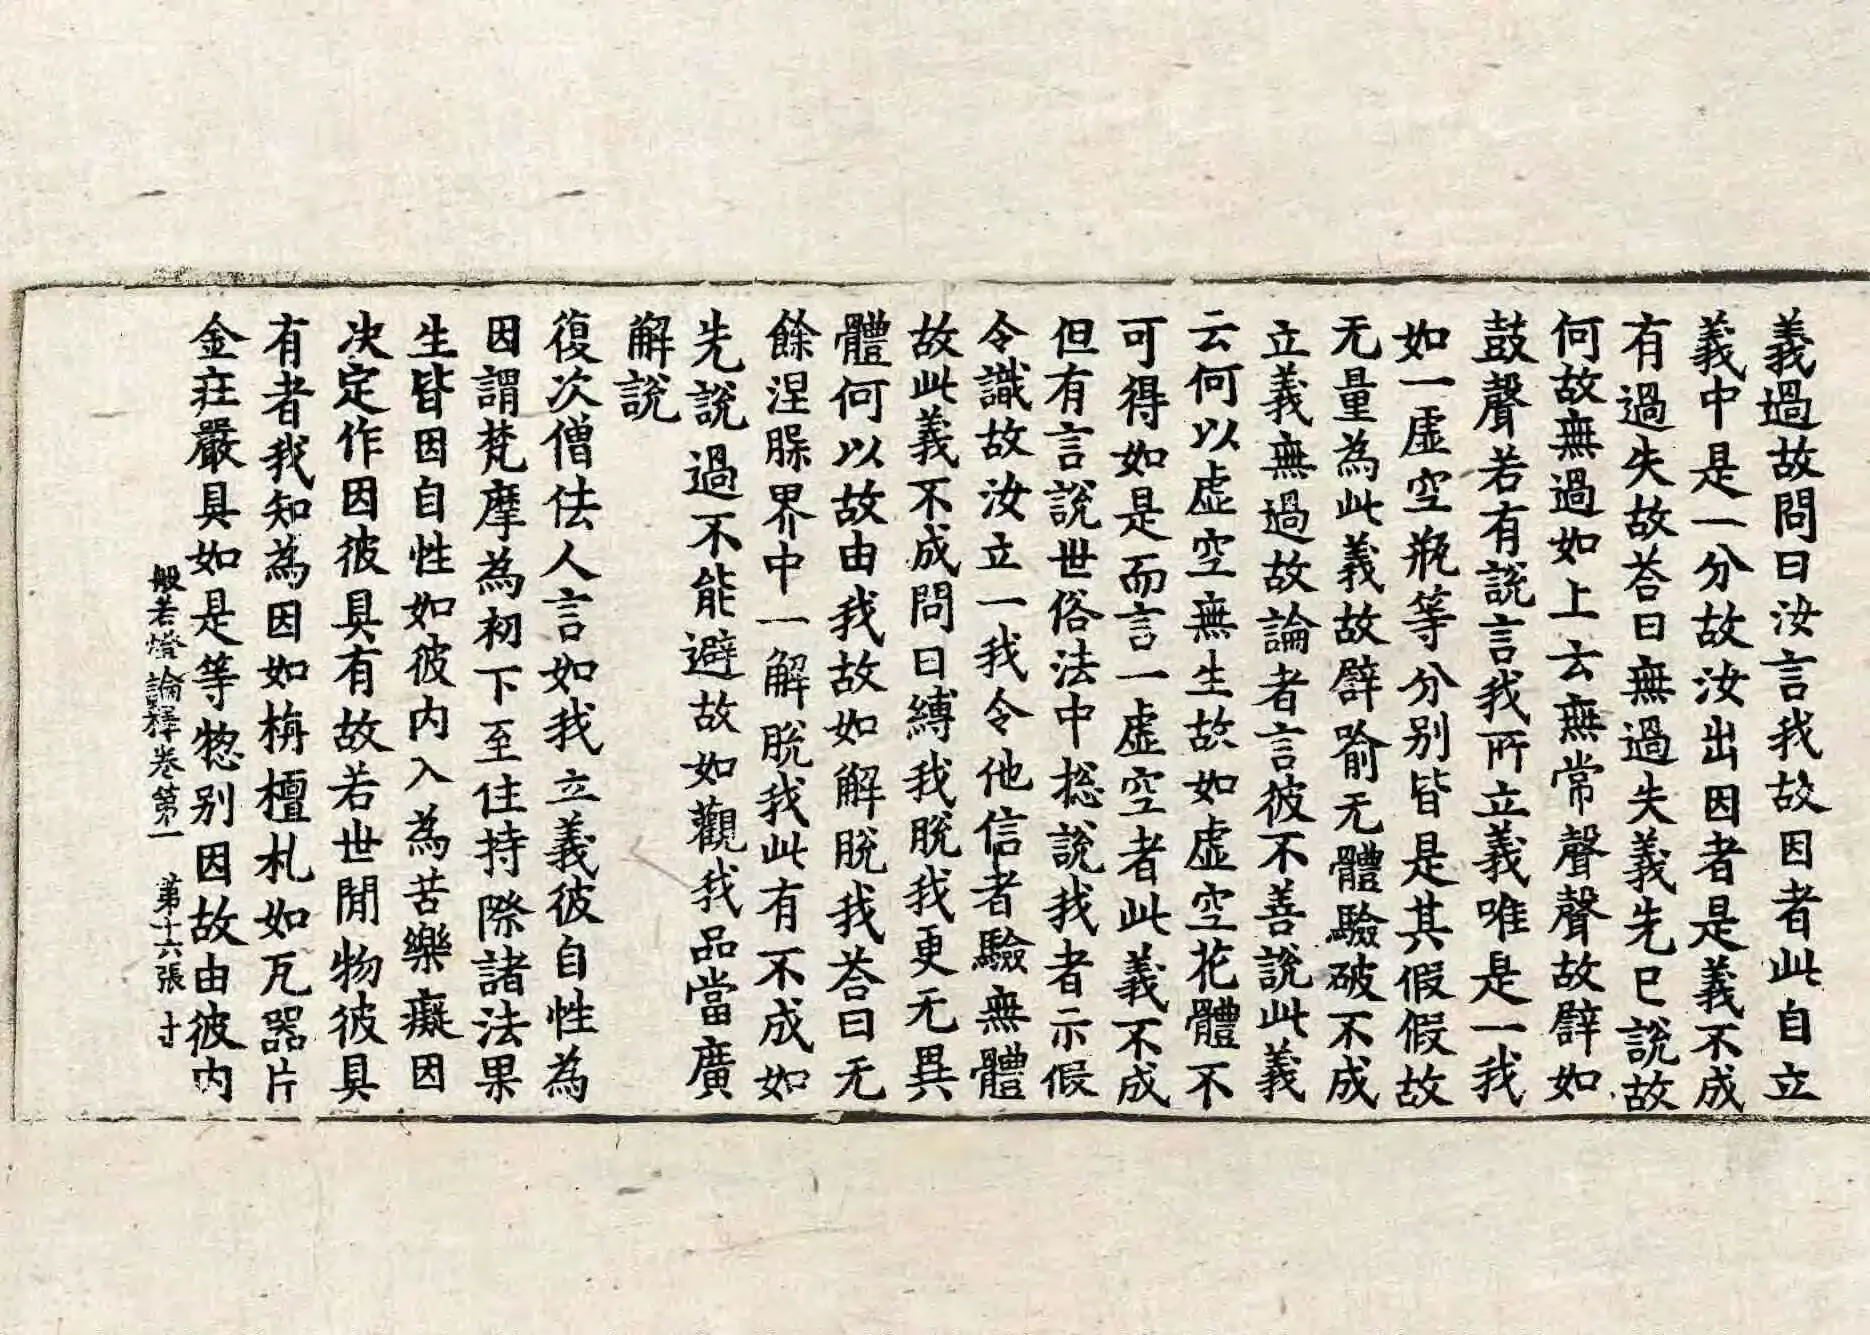 義過故問曰汝言我故因者此自立
義中是一分故汝出因者是義不成
有過失故荅曰無過失義先已說故
何故無過如上云無常聲聲故譬如
鼓聲若有說言我所立義唯是一我
如一虛空瓶等分別皆是其假假故
无量為此義故譬喻无體驗破不成
立義無過故論者言彼不善說此義
云何以虛空無生故如虛空花體不
可得如是而言一虛空者此義不成
但有言說世俗法中揔說我者示假
令識故汝立一我令他信者驗無體
故此義不成問曰縛我脫我更无異
體何以故由我故如解脫我荅曰无
餘涅槃界中一解脫我此有不成如
先說過不能避故如觀我品當廣
解說
復次僧佉人言如我立義彼自性為
因謂梵摩為初下至住持際諸法果
生皆因自性如彼內入為苦樂癡因
決定作因彼具有故若世間物彼具
有者我知為因如栴檀札如瓦器片
金莊嚴具如是等惣別因故由彼內
般若燈論釋卷第一 第十六張 寸